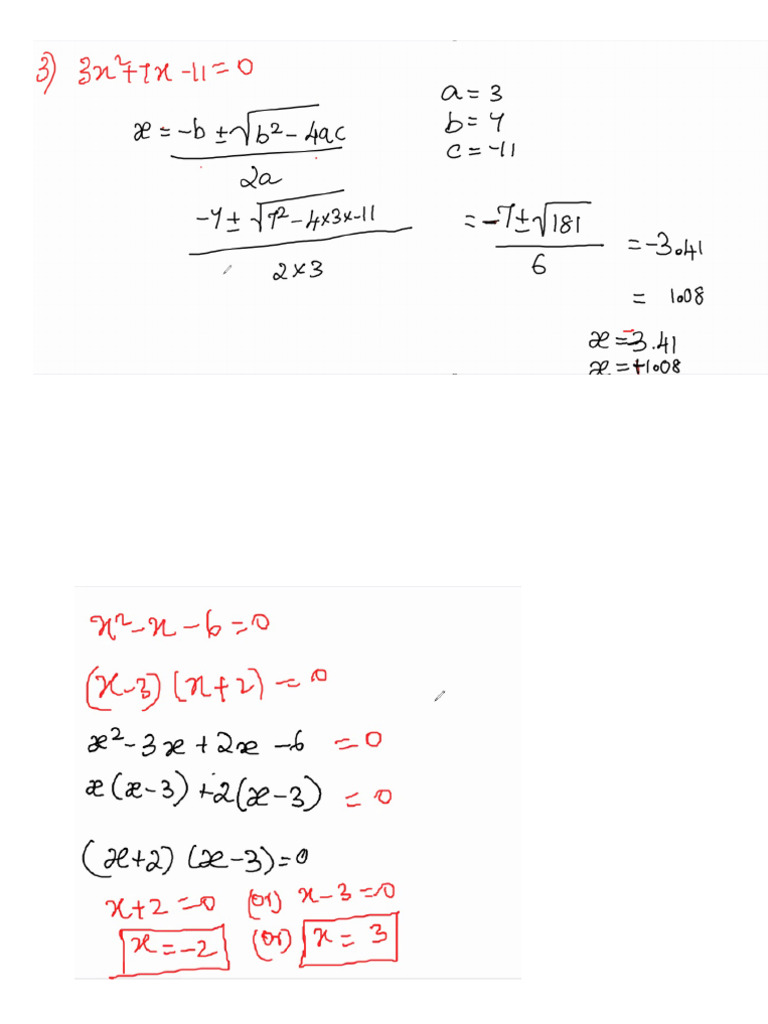 3) 3x²+7x-11=0
a=3
b=7
c=-11
x = -b ± √b²-4ac
2a
-7± √7²-4×3×-11
2×3
= -7±√181
6
= -3.41
= 1.08
x=-3.41
x=+1.08
x²-x-6=0
(x-3)(x+2)=0
x²-3x+2x-6=0
x(x-3)+2(x-3)=0
(x+2)(x-3)=0
x+2=0 (or) x-3=0
x=-2 (or) x=3